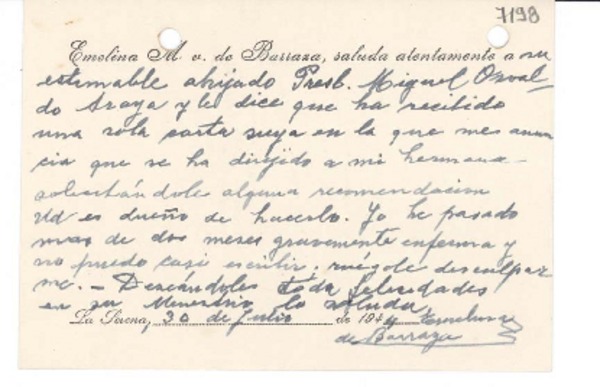 7198
Emelina M. v. de Barraza, saluda atentamente a su
estimable ahijado Presb. Miguel Osval-
do Araya y le dice que ha recibido
una sola carta suya en la que me anun
cia que se ha dirijido a mi hermana
solicitándole alguna recomendacion
Ud es dueño de hacerlo. Yo he pasado
mas de dos meses gravemente enferma y
no puedo casi escribir, ruégole desculpar
me. — Deseándoles toda felicidades
en su Ministerio lo saluda
La Serena, 30 de Julio de 1944 Emelina
de Barraza